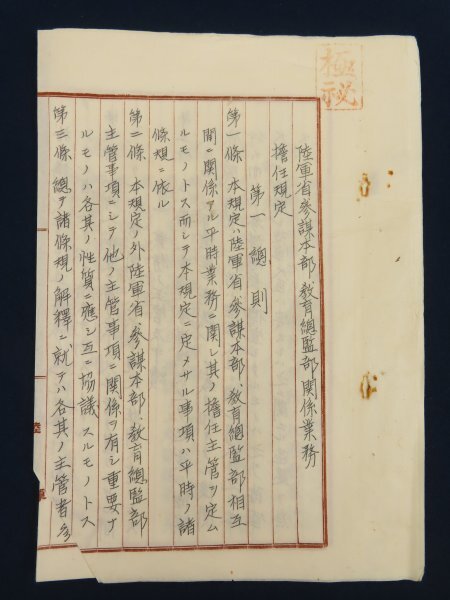 極秘
陸軍省、参謀本部、教育總監部関係業務
擔任規定
第一 總則
第一條 本規定ハ陸軍省、参謀本部、教育總監部相互
間ニ関係アル平時業務ニ関シ其ノ擔任主管ヲ定ム
ルモノトス而シテ本規定ニ定メサル事項ハ平時ノ諸
條規ニ依ル
第二條 本規定ノ外陸軍省、参謀本部、教育總監部
主管事項ニシテ他ノ主管事項ニ関係ヲ有シ重要ナ
ルモノハ各其ノ性質ニ應シ互ニ協議スルモノトス
第三條 總テ諸條規ノ解釋ニ就テハ各其ノ主管者多
陸